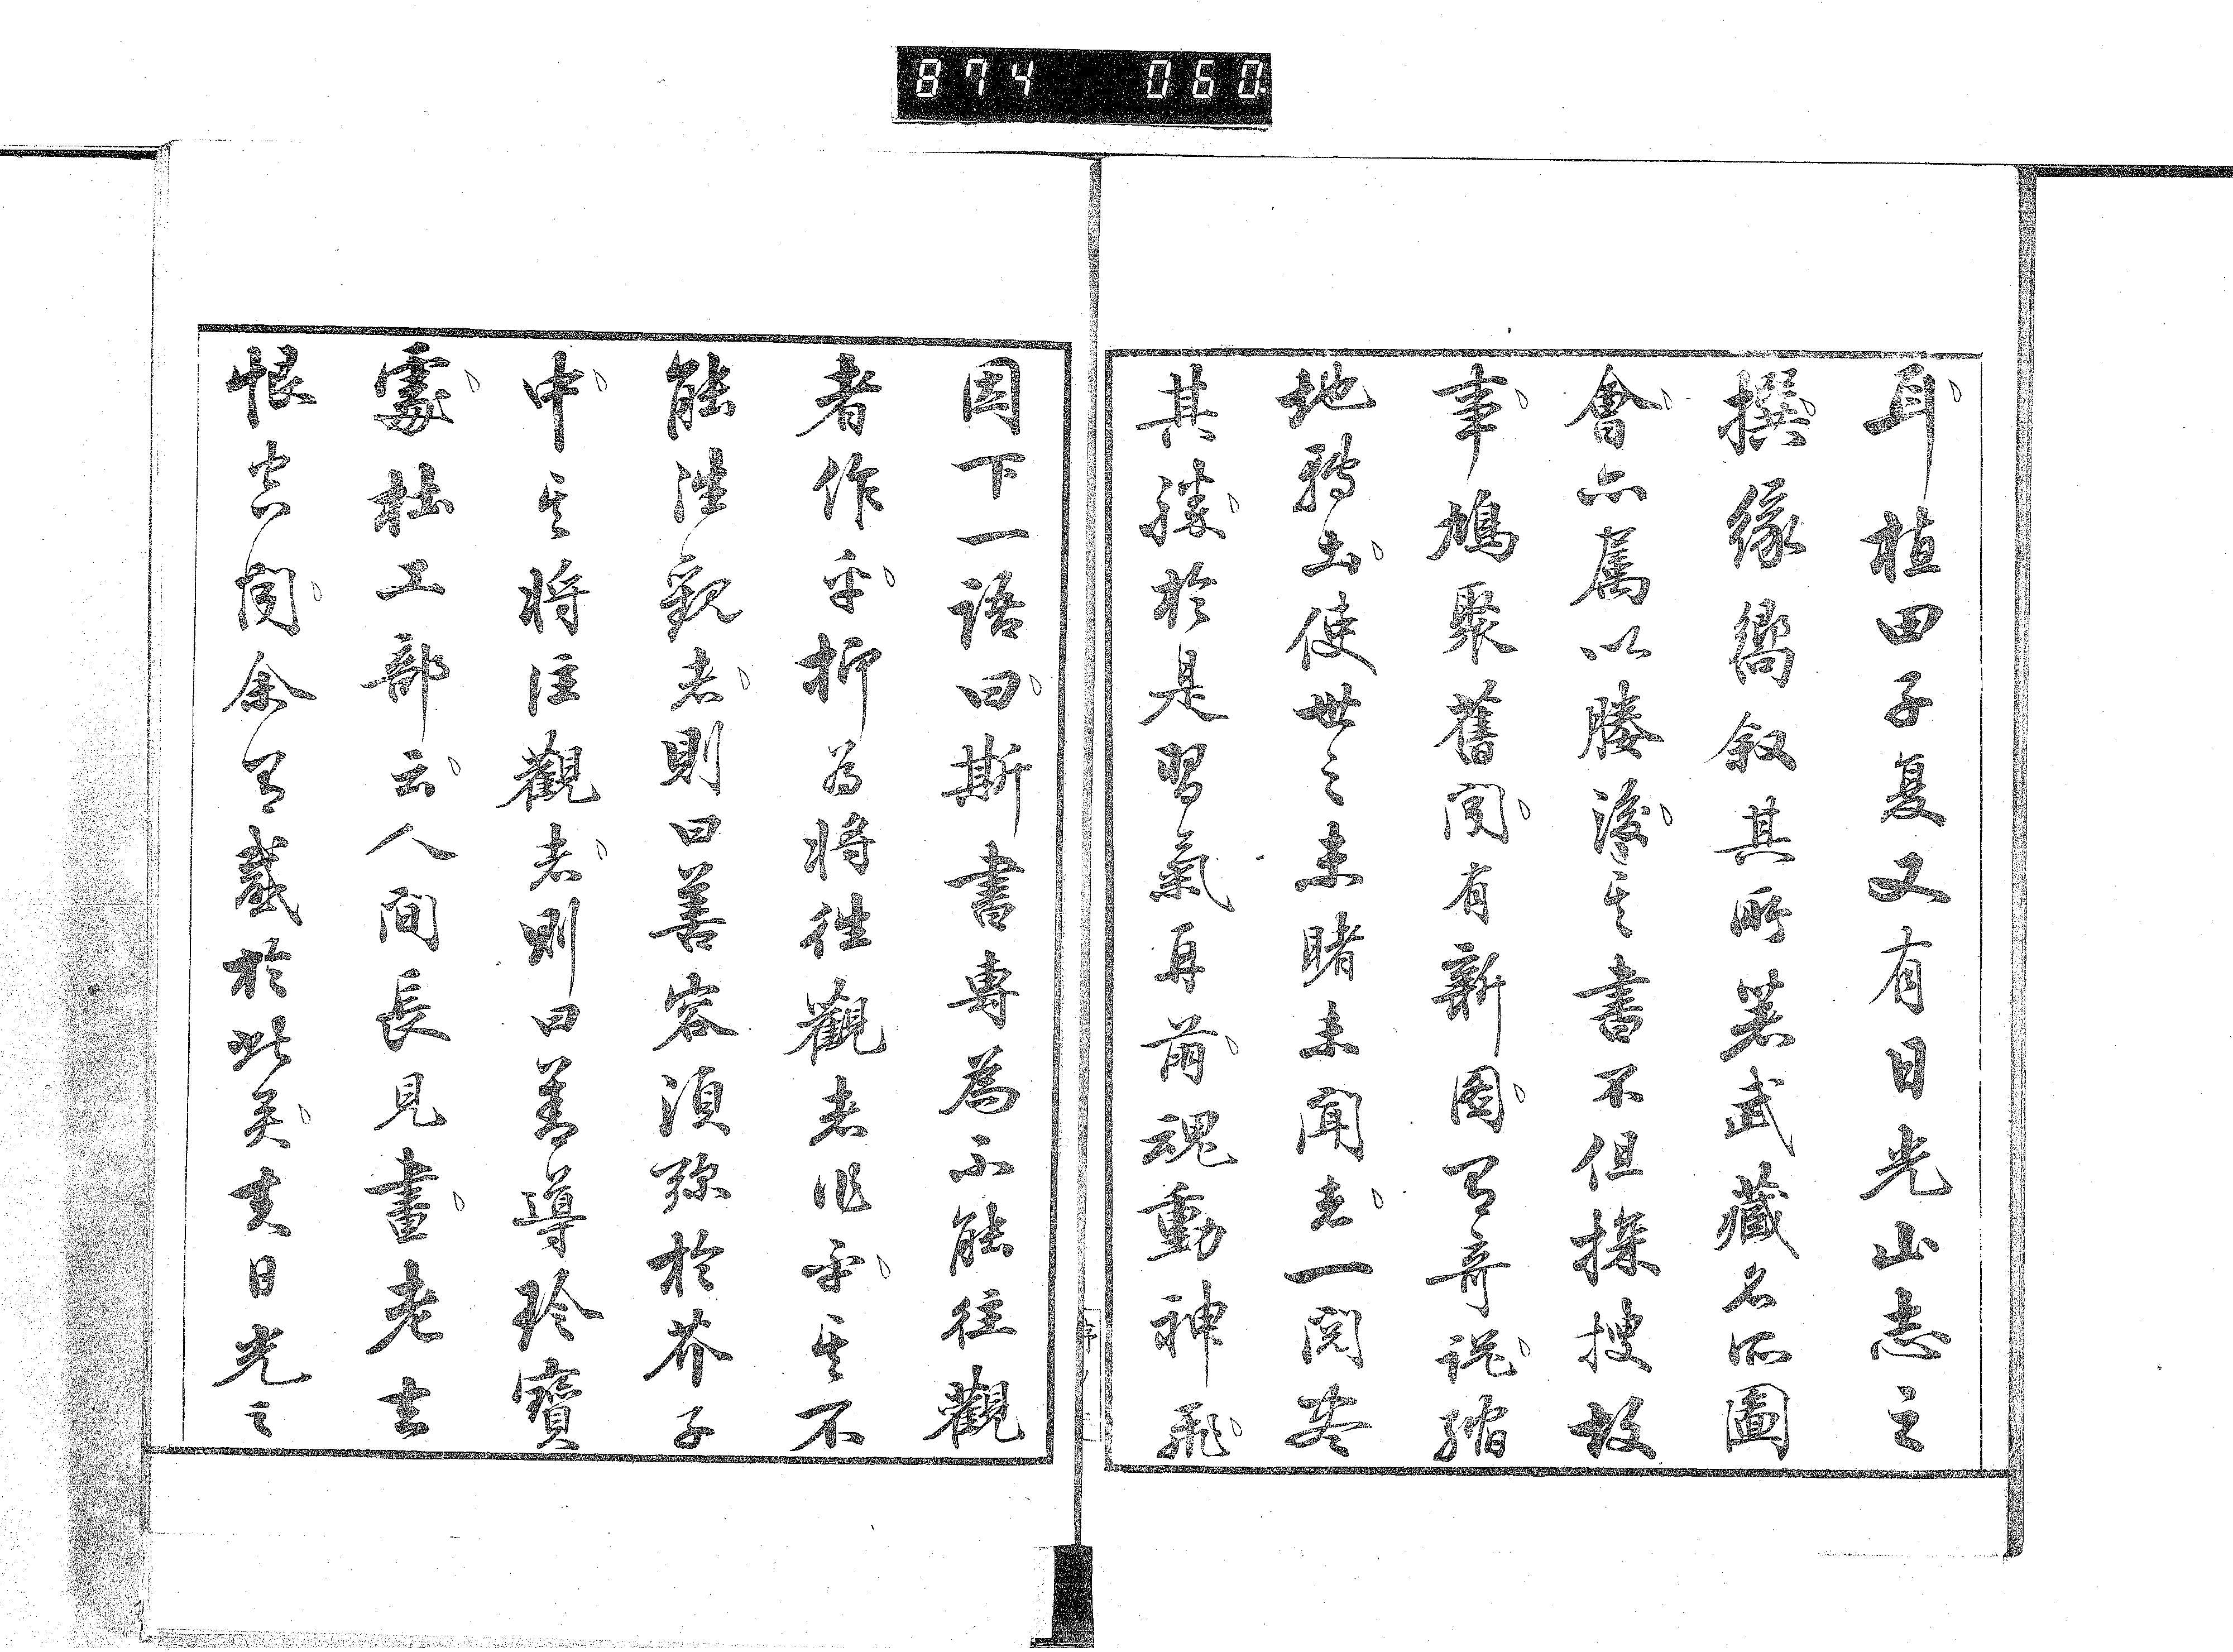 874 060
耳植田子夏又有日光山志之
撰緣嚮叙其所著武藏名所圖
會亦属以賸後其書不但探搜故
事鳩聚舊聞有新圖有奇說縮
地轉土使世之未睹未聞者一閱盡
其勝於是習氣再萠魂動神飛
因下一語曰斯書專為不能往觀
者作乎抑為將往觀者作乎其不
能往觀者則曰善容須弥於芥子
中其將往觀者則曰善導於寶
處杜工部云人間長見畫老去
恨空聞余有感於此矣夫日光之